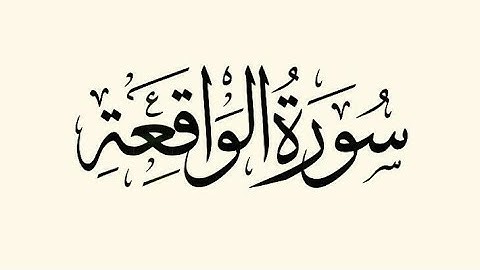 سُورَةُ الْوَاقِعَةِ